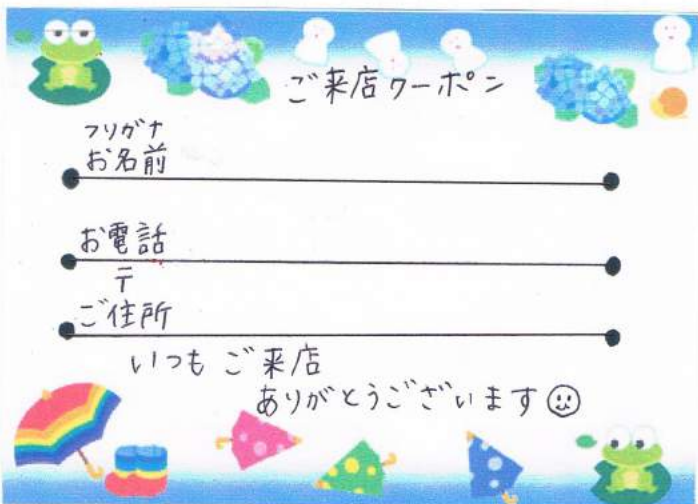 ご来店クーポン
フリガナ
お名前
お電話
〒
ご住所
いつも ご来店
ありがとうございます☺